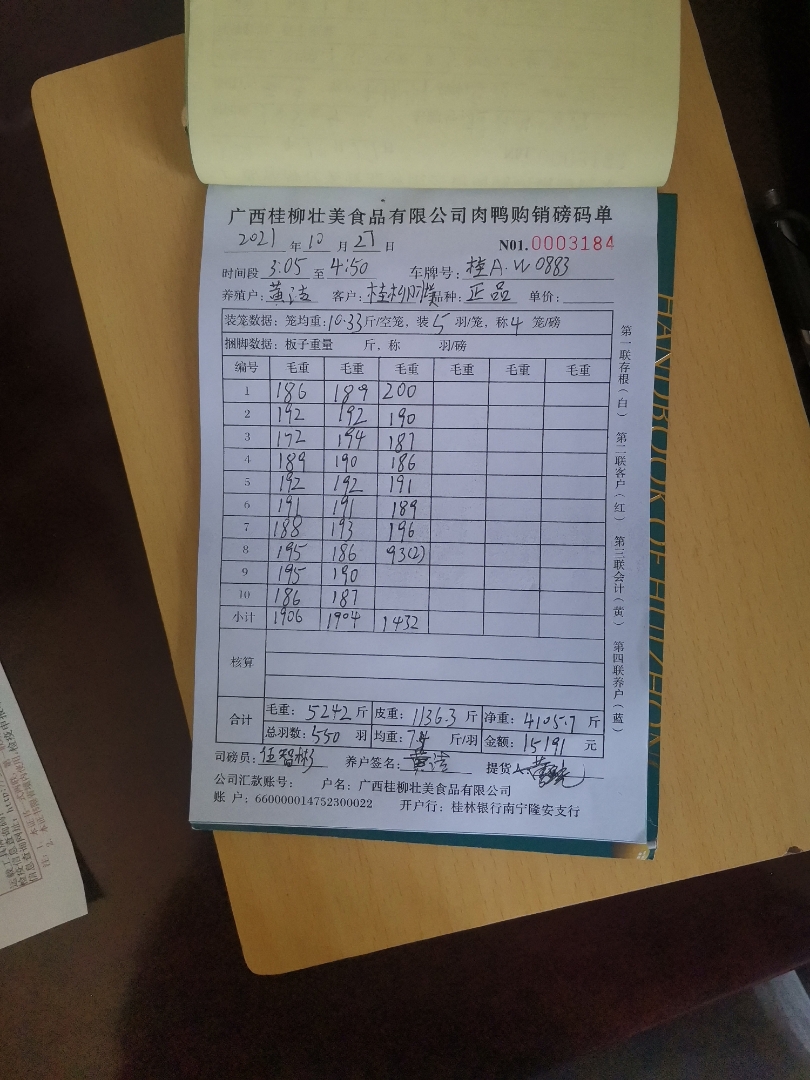 广西桂柳壮美食品有限公司肉鸭购销磅码单
2021 年 10 月 27 日 N01.0003184
时间段 3:05 至 4:50 车牌号: 桂A.W0883
养殖户: 黄洁 客户: 桂柳 品种: 正品 单价:
装笼数据: 笼均重: 10.33 斤/空笼, 装 5 羽/笼, 称 4 笼/磅
捆脚数据: 板子重量 斤, 称 羽/磅
编号 毛重 毛重 毛重 毛重 毛重 毛重
1 186 189 200
2 192 192 190
3 172 194 187
4 189 190 186
5 192 192 191
6 191 191 189
7 188 193 196
8 195 186 93(2)
9 195 190
10 186 187
小计 1906 1904 1432
核算
合计 毛重: 5242 斤 皮重: 1136.3 斤 净重: 4105.7 斤
总羽数: 550 羽 均重: 7.4 斤/羽 金额: 15191 元
司磅员: 伍智彬 养户签名: 黄洁 提货人
公司汇款账号: 户名: 广西桂柳壮美食品有限公司
账 户: 660000014752300022 开户行: 桂林银行南宁隆安支行
第一联存根(白) 第二联客户(红) 第三联会计(黄) 第四联养户(蓝)
HANDBOOK OF HUIZHONG